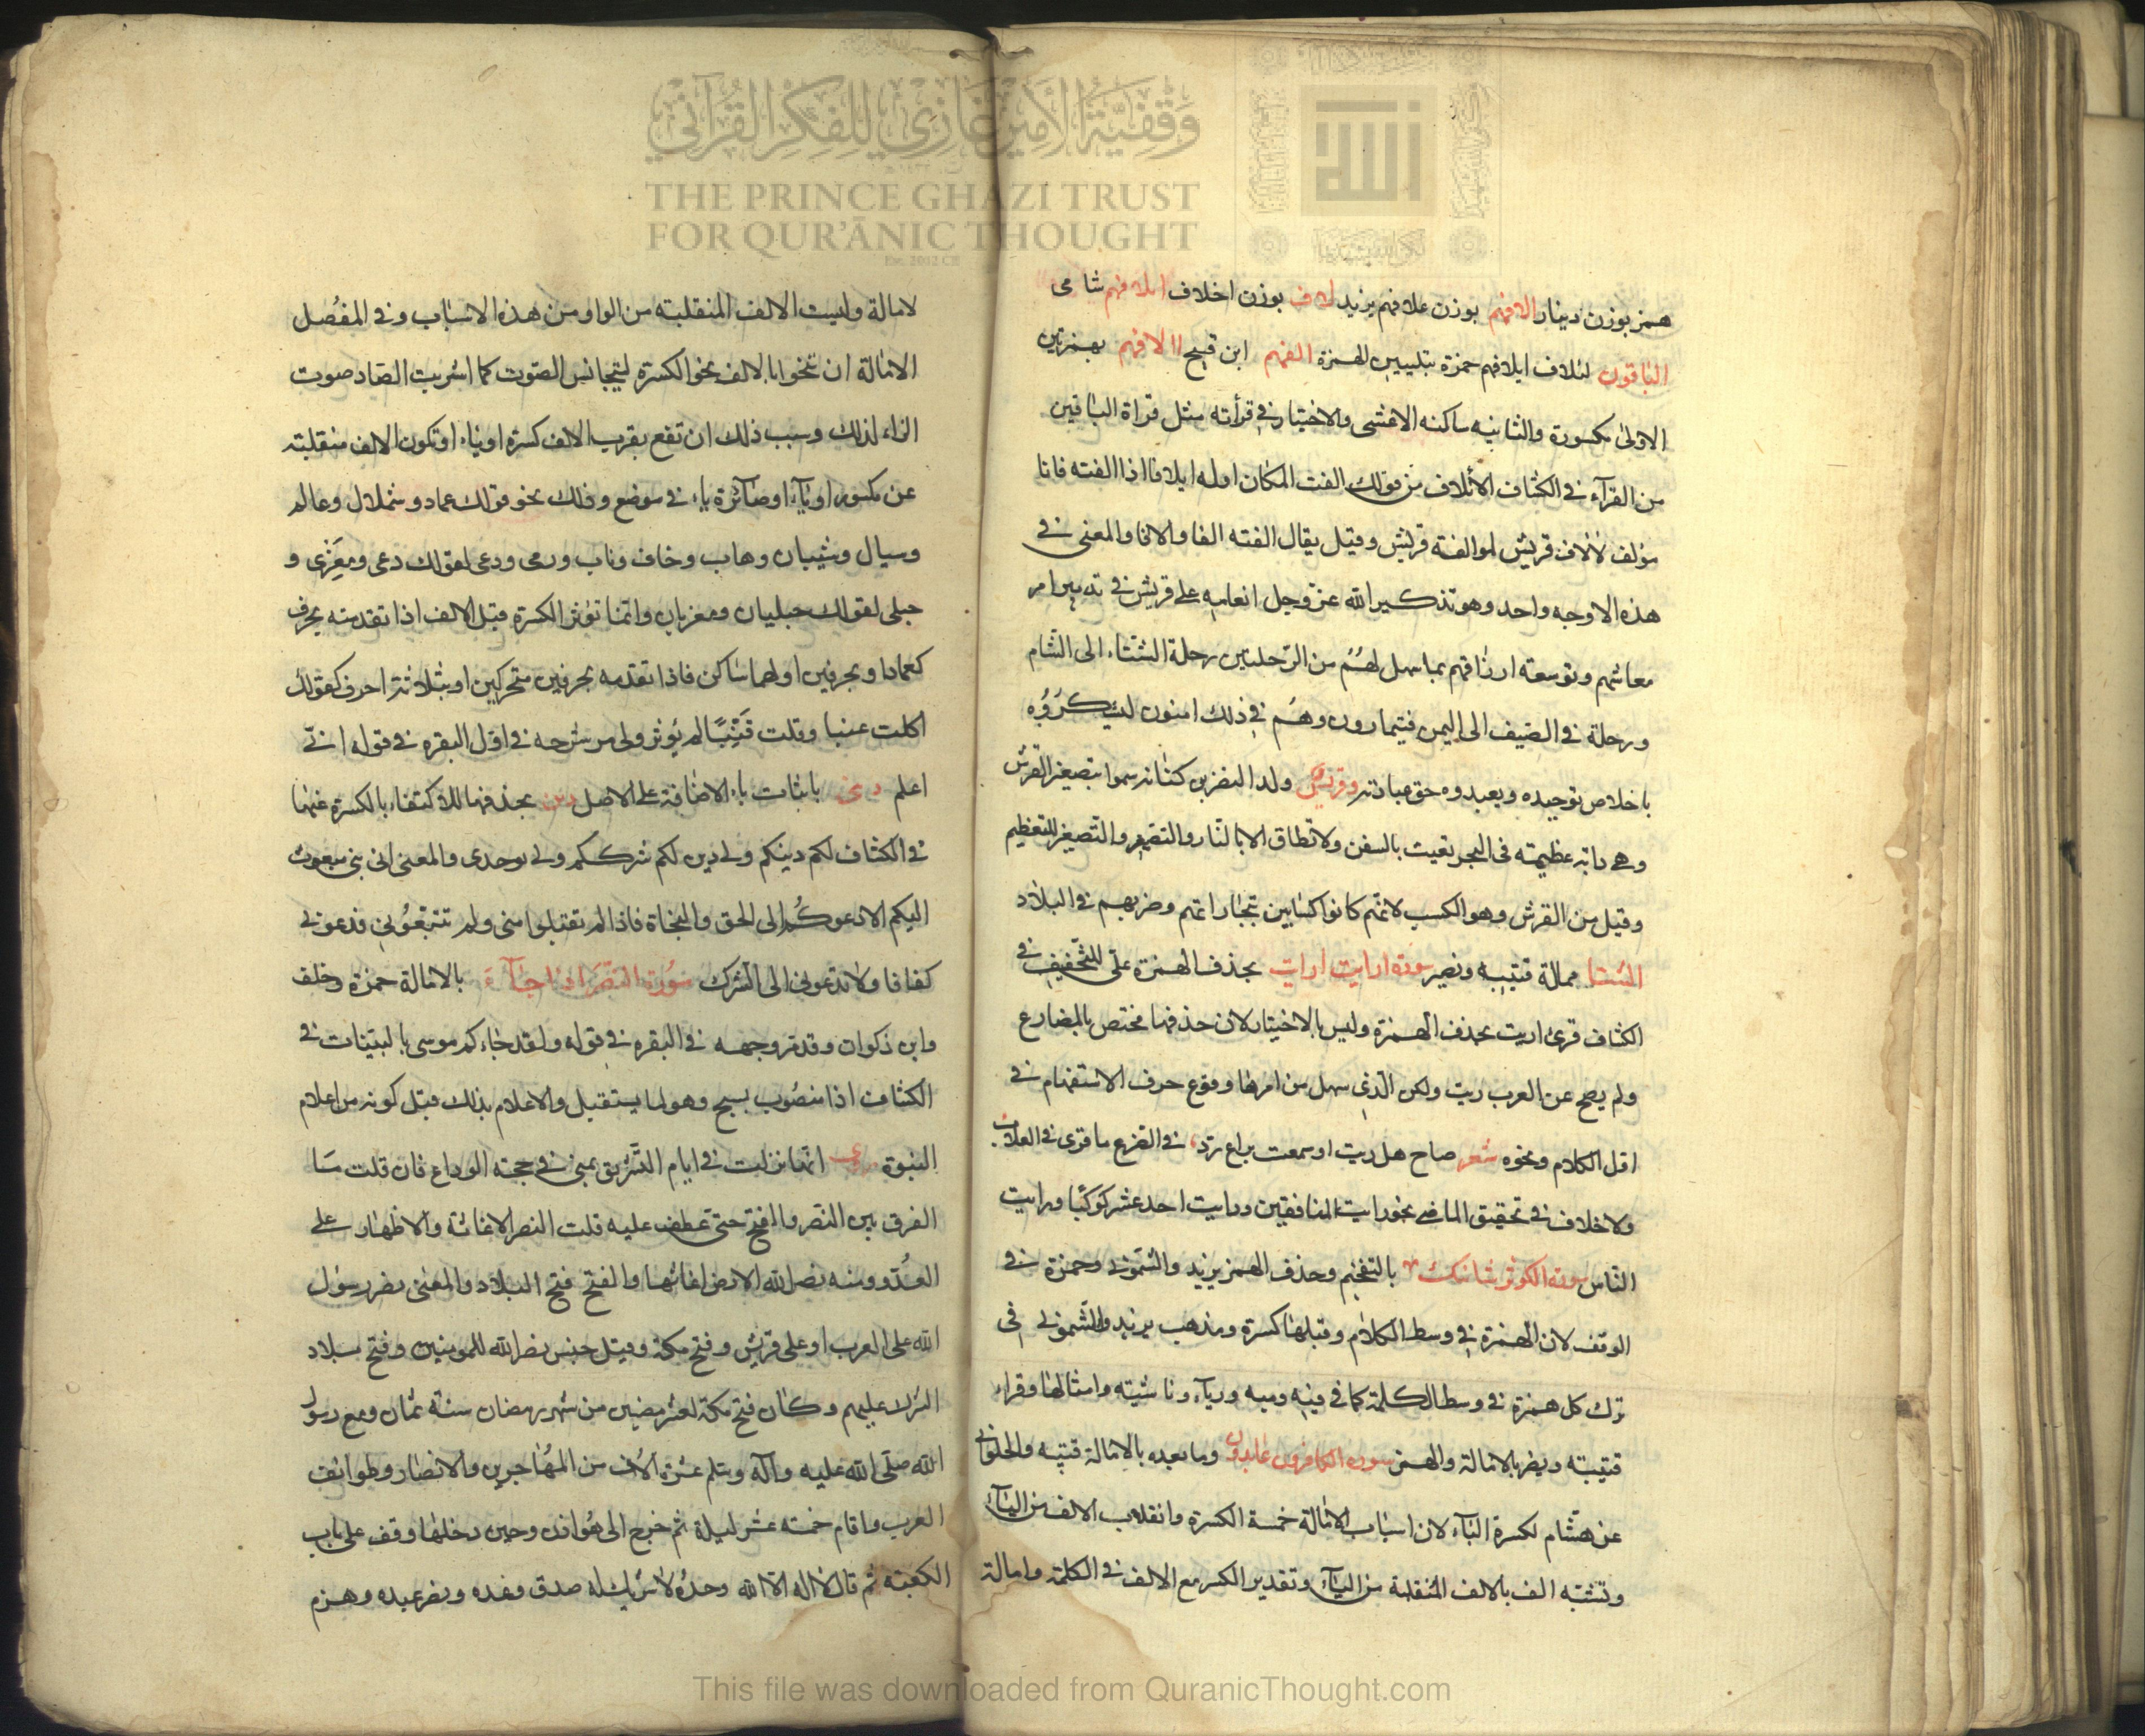 وقفية الأمير غازي للفكر القرآني
THE PRINCE GHAZI TRUST
FOR QUR'ĀNIC THOUGHT
همز بوزن دينار الافهم بوزن علافهم يزيد لاف بوزن اخلاف ايلافهم شامى
الباقون لئلاف ايلافهم حمزة بتليين الهمزة الفهم ابن فليح االافهم بهمزتين
الاولى مكسورة والثانيه ساكنه الاعشى والاختيار فى قرأته مثل قراة الباقين
من القرآء فى الكشاف الائلاف من قولك الفت المكان اولفه ايلافا اذا الفته فانا
مؤلف لائلاف قريش لموالفة قريش وقيل يقال الفته الفا والافا والمعنى فى
هذه الاوجه واحد وهو تذكير الله عز وجل انعامه على قريش فى تدبير امر
معاشهم وتوسعته ارزاقهم بما سهل لهم من الرحلتين رحلة الشتاء الى الشام
ورحلة فى الصيف الى اليمن فيتمارون وهم فى ذلك امنون ليشكروه
باخلاص توحيده ويعبدوه حق عبادته وقريش ولد النضر بن كنانه سموا بتصغير القرش
وهى دابة عظيمته فى البحر تعيث بالسفن ولا تطاق الا بالنار والتصغير للتعظيم
وقيل من القرش وهو الكسب لانهم كانوا كسابين بتجاراتهم وضربهم فى البلاد
الشتا ممالة قتيبه ونصير سورة ارايت ارايت بحذف الهمزة على للتخفيف فى
الكشاف قرئ اريت بحذف الهمزة وليس بالاختيار لان حذفها مختص بالمضارع
ولم يصح عن العرب ريت ولكن الذى سهل من امرها وقوع حرف الاستفهام فى
اول الكلام ونحوه شعر صاح هل ريت او سمعت براع رد فى الضرع ما قرى فى العلاب
ولا خلاف فى تحقيق الماضى نحو رايت المنافقين ورايت احد عشر كوكبا ورايت
الناس سورة الكوثر شانئك بالتفخيم وحذف الهمز يزيد والشمونى وحمزة فى
الوقف لان الهمزة فى وسط الكلام وقبلها كسرة ومذهب يزيد والشمونى فى
ترك كل همزة فى وسط الكلمة كما فى فيه وميه وريآء وناشيته وامثالها وقراء
قتيبته ونصر بالامالة والهمز سورة الكافرون عابدون وما بعده بالامالة قتيبه والحلوانى
عن هشام لكسرة البآء لان اسباب الامالة خمسة الكسرة وانقلاب الالف من اليآء
وتشبه الف بالالف المنقلبة من اليآء وتقدير الكسر مع الالف فى الكلمة وامالة
لامالة وليست الالف المنقلبته من الواو من هذه الاسباب وفى المفصل
الامالة ان تنحوا بالالف نحو الكسرة ليتجانس الصوت كما اشربت الصاد صوت
الزاء لذلك وسبب ذلك ان تقع بقرب الالف كسرة او ياء او تكون الالف منقلبته
عن مكسور او يآء او صآئرة ياء فى موضع وذلك نحو قولك عماد وشملال وعالم
وسيال وشيبان وهاب وخاف وناب ورمى ودعى لقولك دعى ومغزى و
حبلى لقولك حبليان ومغزيان وانما تؤثر الكسرة قبل الالف اذا تقدمته بحرف
كعمادا وبحرفين اولهما ساكن فاذا تقدمه بحرفين متحركين او بثلاثة احرف كقولك
اكلت عنبا وقلت قنبا لم يؤثر ولى مر شرحه فى اول البقره فى قوله انى
اعلم دينى باثبات ياء الاضافة على الاصل دين بحذفها للاكتفاء بالكسرة عنها
فى الكشاف لكم دينكم ولى دين لكم شرككم ولى توحدى والمعنى انى نبى مبعوث
اليكم لادعوكم الى الحق والنجاة فاذا لم تقبلوا منى ولم تتبعونى فدعونى
كفافا ولا تدعونى الى الشرك سورة النصر اذا جآء بالامالة حمزة وخلف
وابن ذكوان وقد مر وجهه فى البقره فى قوله ولقد جاءكم موسى بالبينات فى
الكشاف اذا منصوب بسبح وهو لما يستقبل والاعلام بذلك قبل كونه من اعلام
النبوة انها نزلت فى ايام التشريق بمنى فى حجته الوداع فان قلت ما
الفرق بين النصر والفتح حتى عطف عليه قلت النصر الاغاثة والاظهار على
العدو ومنه نصر الله الارض اغاثها والفتح فتح البلاد والمعنى نصر رسول
الله على العرب او على قريش وفتح مكة وقيل جنس نصر الله للمومنين وفتح بلاد
الشرك عليهم وكان فتح مكة لعشر مضين من شهر رمضان سنة ثمان ومع رسول
الله صلى الله عليه وآله وسلم عشرة الاف من المهاجرين والانصار وطوائف
العرب واقام خمسة عشر ليلة ثم خرج الى هوازن وحين دخلها وقف على باب
الكعبته ثم قال لا اله الا الله وحده لا شريك له صدق وعده ونصر عبده وهزم
This file was downloaded from QuranicThought.com